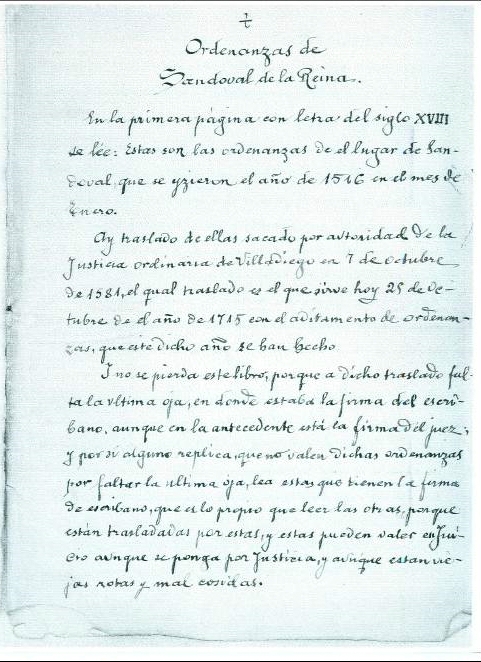 Ordenanzas de
Sandoval de la Reina.
En la primera página con letra del siglo XVIII
se lée: Estas son las ordenanzas de el lugar de San-
doval, que se yzieron el año de 1516 en el mes de
Enero.
Ay traslado de ellas sacado por autoridad de la
Justicia ordinaria de Villadiego en 7 de octubre
de 1581, el qual traslado es el que sirve hoy 25 de Oc-
tubre de el año de 1715 con el aditamento de ordenan-
zas, que este dicho año se han hecho
I no se pierda este libro, porque a dicho traslado fal-
ta la vltima oja, en donde estaba la firma del escri-
bano, aunque en la antecedente está la firma del juez;
Y por si alguno replica, que no valen dichas ordenanzas
por faltar la ultima oja, lea estas que tienen la firma
de escribano, que es lo propio que leer las otras, porque
están trasladadas por estas, y estas pueden valer en Jui-
cio aunque se ponga por Justicia, y aunque estan vie-
jas rotas y mal cosidas.